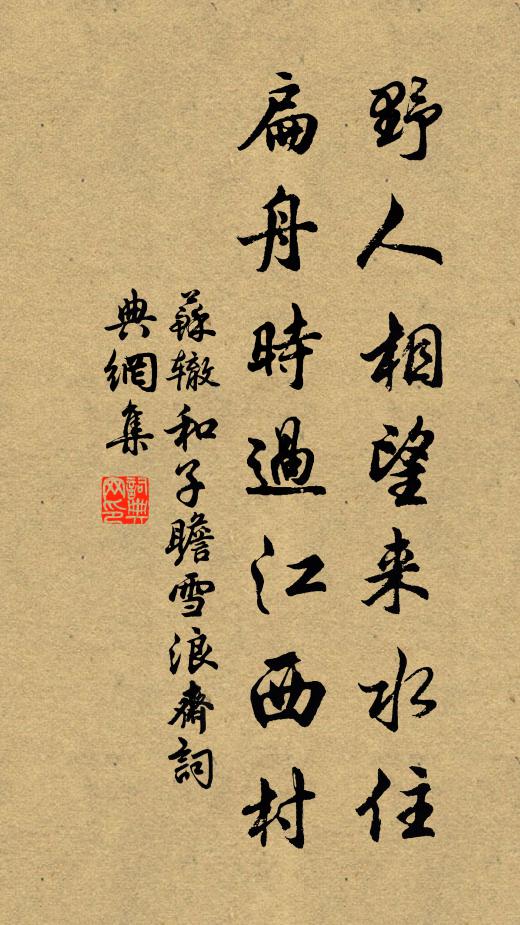 野人相望来水住
扁舟時過江西村
蘇辙和子瞻雪浪齋詞
典網集
詞典网印